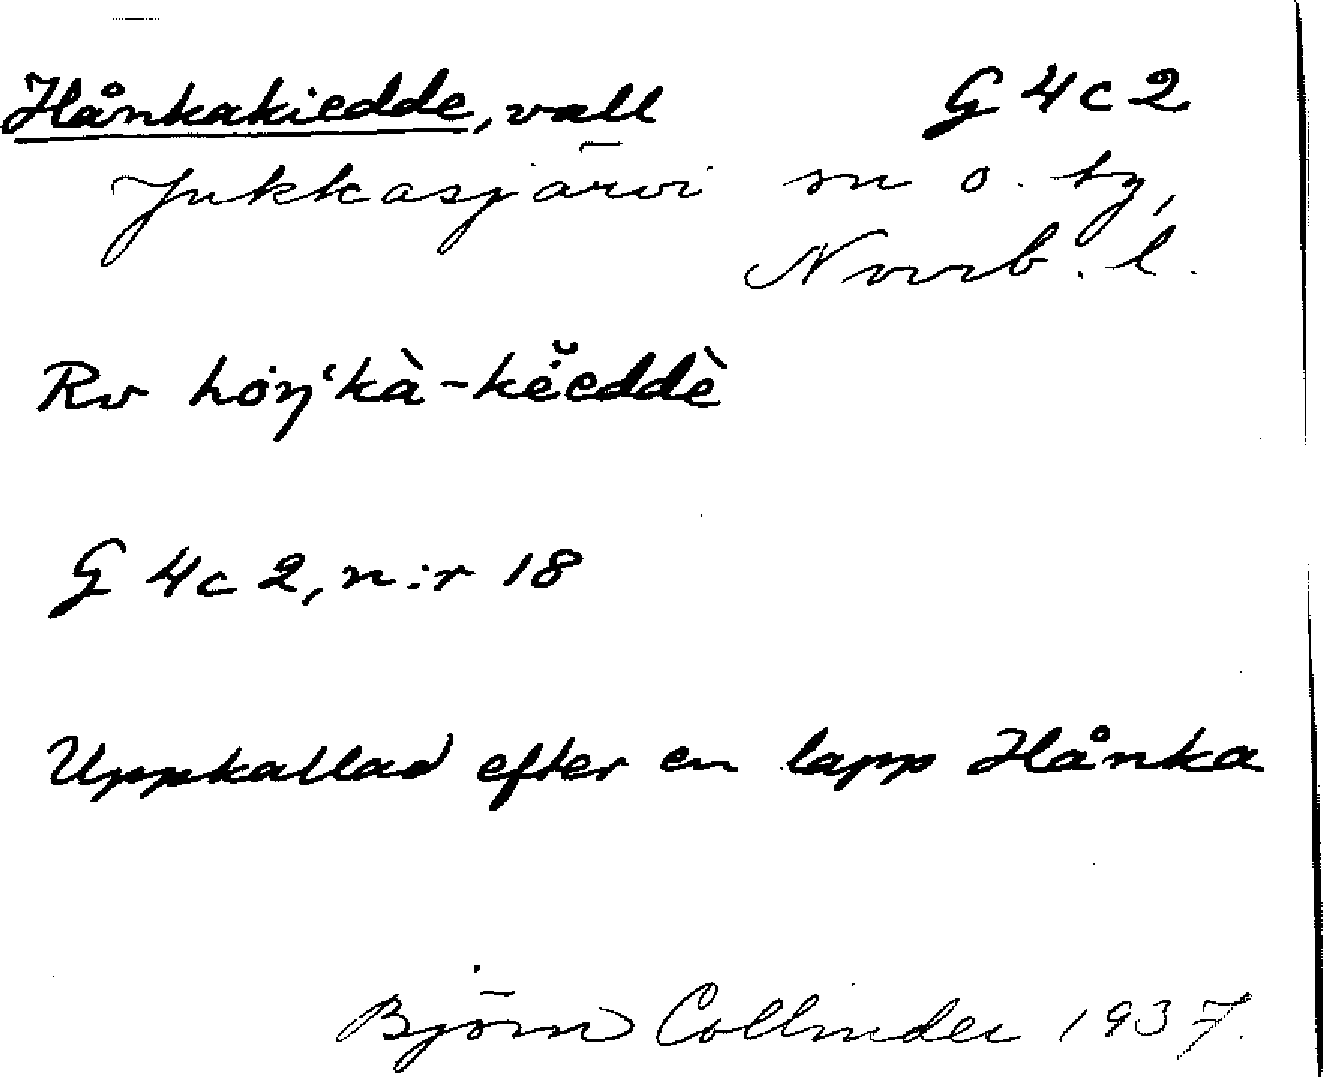 Hånkakiedde, vall G 4c2
Jukkasjärvi sn o. by,
Norrb. l.
Rv hoŋ‘kà-kĕeddè
G 4c 2, n:r 18
Uppkallad efter en lapp Hånka
Björn Collinder 1937.